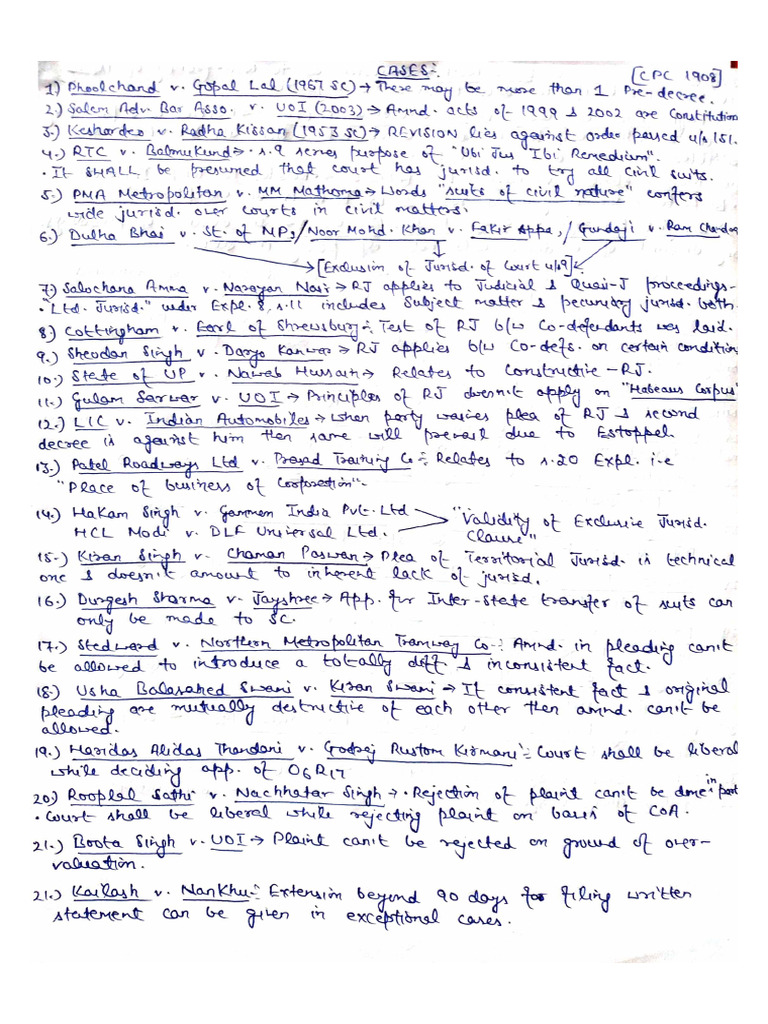 CASES:-
[CPC 1908]
1) Phoolchand v. Gopal Lal (1967 SC) → There may be more than 1 Pre-decree.
2.) Salem Adv. Bar Asso. v. UOI (2003) → Amnd. acts of 1999 & 2002 are Constitution
3.) Keshardeo v. Radha Kissan (1953 SC) → REVISION lies against order passed u/s 151.
4.) RTC v. Balmukund → s.9 serves purpose of "Ubi Jus Ibi Remedium".
• It SHALL be presumed that court has jurisd. to try all civil suits.
5.) PMA Metropolitan v. MM Mathoma → Words "suits of civil nature" confers
wide jurisd. over courts in civil matters.
6.) Dulha Bhai v. St. of MP, / Noor Mohd. Khan v. Fakir Appa, / Gundaji v. Ram Chandra
→ [Exclusion of Jurisd. of Court u/s 9] ←
7.) Sulochana Amma v. Narayan Nair → RJ applies to Judicial & Quasi-J proceedings-
• "Ltd. Jurisd." under Expl. 8, s.11 includes Subject matter & pecuniary jurisd. both.
8) Cottingham v. Earl of Shrewsbury :- Test of RJ b/w Co-defendants was laid.
9.) Sheodan Singh v. Daryo Kanwar → RJ applies b/w Co-defs. on certain condition
10.) State of UP v. Nawab Hussain → Relates to Constructive-RJ.
11.) Gulam Sarwar v. UOI → Principles of RJ doesn't apply on "Habeaus Corpus"
12.) LIC v. Indian Automobiles → when party waives plea of RJ & second
decree is against him then same will prevail due to Estoppel.
13.) Patel Roadways Ltd v. Prasad Trading Co :- Relates to s.20 Expl. i.e
"Place of business of Corporation".
14.) Hakam Singh v. Gammon India Pvt. Ltd
HCL Modi v. DLF Universal Ltd.
"Validity of Exclusive Jurisd.
Clause"
15.) Kiran Singh v. Chaman Paswan → Plea of Territorial Jurisd. is technical
one & doesn't amount to inherent lack of jurisd.
16.) Durgesh Sharma v. Jayshree → App. for Inter-state transfer of suits can
only be made to SC.
17.) Stedward v. Northern Metropolitan Tramway Co :- Amnd. in pleading can't
be allowed to introduce a totally diff & inconsistent fact.
18.) Usha Balasahed Swani v. Kiran Swani → If consistent fact & original
pleading are mutually destructive of each other then amnd. can't be
allowed.
19.) Haridas Alidas Thandani v. Godrej Rustom Kirmani :- Court shall be liberal
while deciding app. of O6R17
20.) Rooplal Sathi v. Nachhatar Singh → • Rejection of plaint can't be done in part
• Court shall be liberal while rejecting plaint on basis of CoA.
21.) Boota Singh v. UOI → Plaint can't be rejected on ground of over-
valuation.
21.) Kailash v. Nankhu :- Extension beyond 90 days for filing written
statement can be given in exceptional cases.